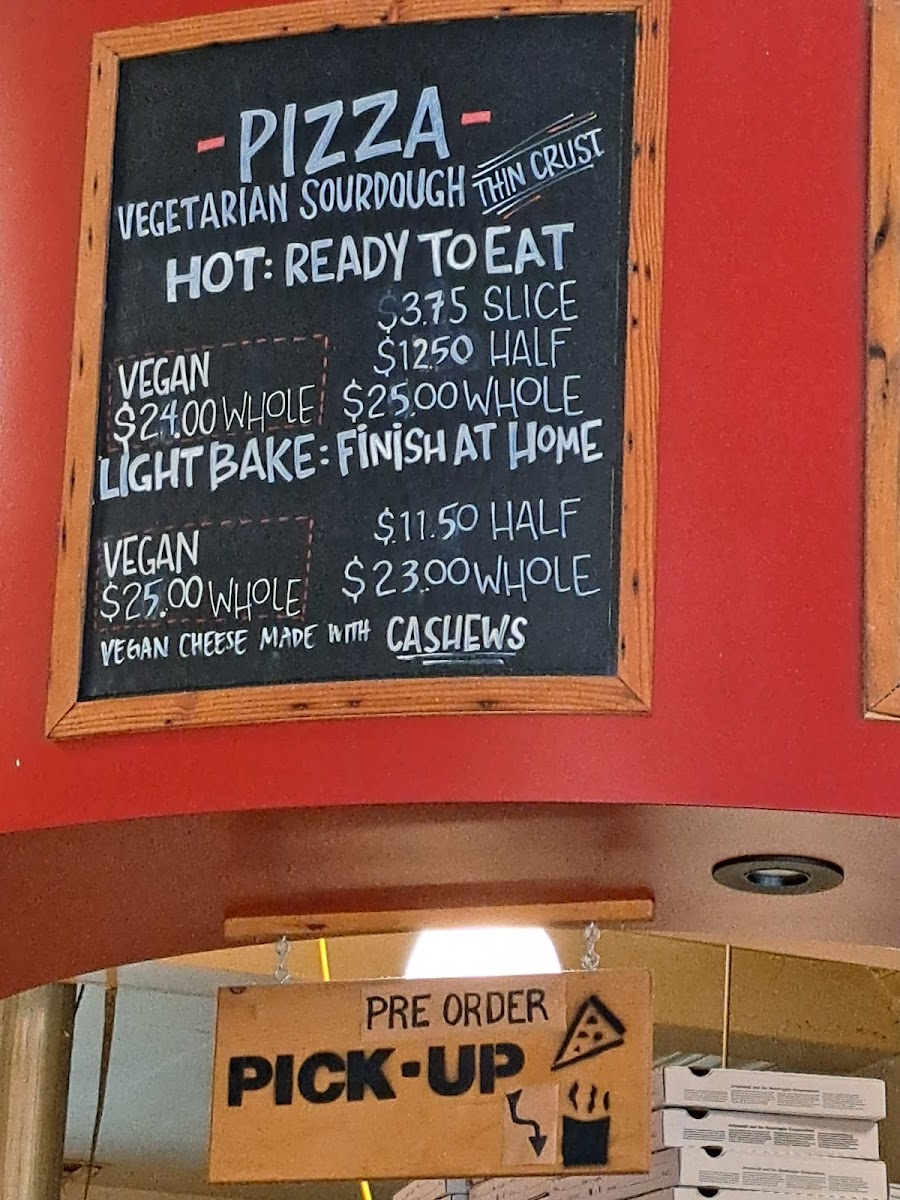 - PIZZA -
VEGETARIAN SOURDOUGH THIN CRUST
HOT: READY TO EAT
$3.75 SLICE
$12.50 HALF
VEGAN
$24.00 WHOLE $25.00 WHOLE
LIGHT BAKE: FINISH AT HOME
$11.50 HALF
VEGAN
$25.00 WHOLE $23.00 WHOLE
VEGAN CHEESE MADE WITH CASHEWS
PRE ORDER
PICK-UP